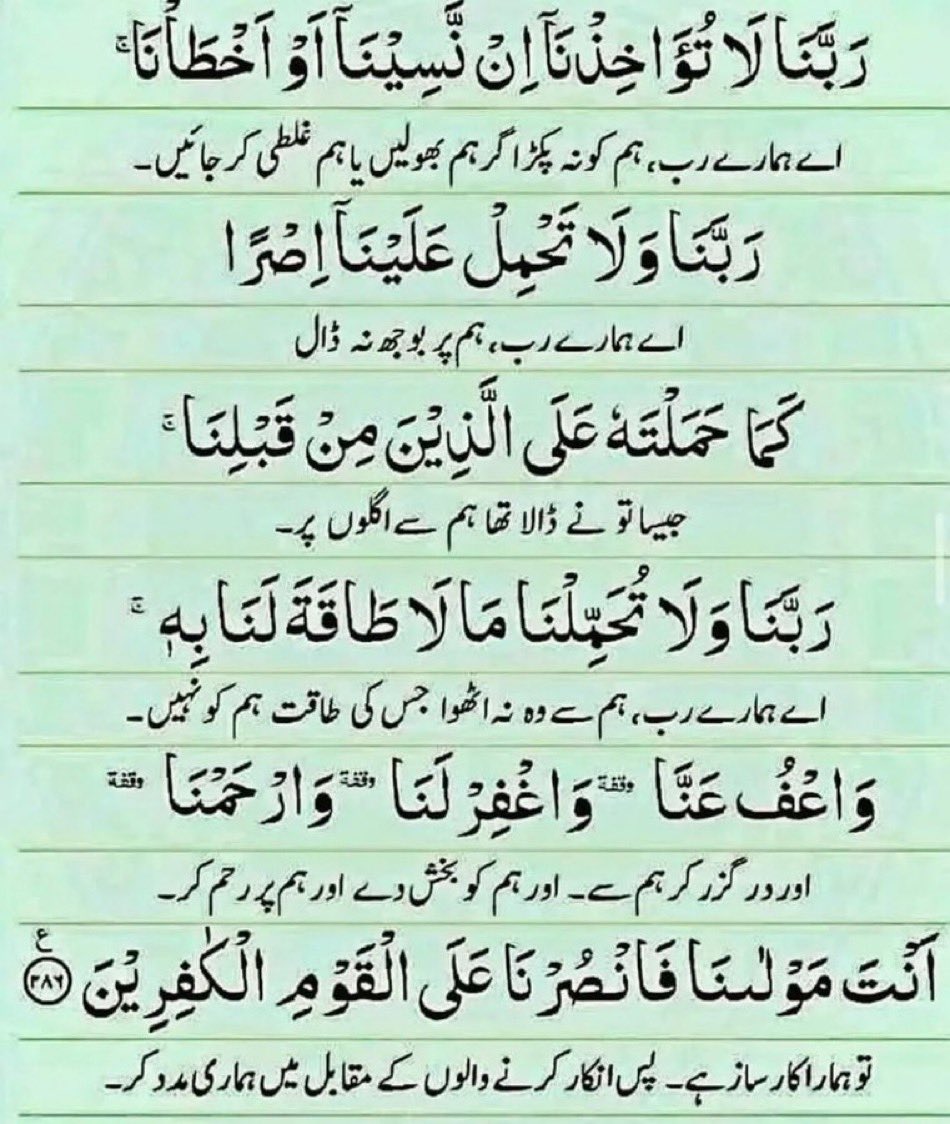 رَبَّنَا لَا تُؤَاخِذْنَآ اِنْ نَّسِیْنَآ اَوْ اَخْطَاْنَا ۚ
اے ہمارے رب، ہم کو نہ پکڑ اگر ہم بھولیں یا ہم غلطی کر جائیں۔
رَبَّنَا وَلَا تَحْمِلْ عَلَیْنَآ اِصْرًا
اے ہمارے رب، ہم پر بوجھ نہ ڈال
كَمَا حَمَلْتَهٗ عَلَی الَّذِیْنَ مِنْ قَبْلِنَا ۚ
جیسا تو نے ڈالا تھا ہم سے اگلوں پر۔
رَبَّنَا وَلَا تُحَمِّلْنَا مَا لَا طَاقَةَ لَنَا بِهٖ ۚ
اے ہمارے رب، ہم سے وہ نہ اٹھوا جس کی طاقت ہم کو نہیں۔
وَاعْفُ عَنَّا وقفة وَاغْفِرْ لَنَا وقفة وَارْحَمْنَا وقفة
اور درگزر کر ہم سے۔ اور ہم کو بخش دے اور ہم پر رحم کر۔
اَنْتَ مَوْلٰىنَا فَانْصُرْنَا عَلَی الْقَوْمِ الْكٰفِرِیْنَ ﴿۲۸۶﴾ ع
تو ہمارا کارساز ہے۔ پس انکار کرنے والوں کے مقابل میں ہماری مدد کر۔